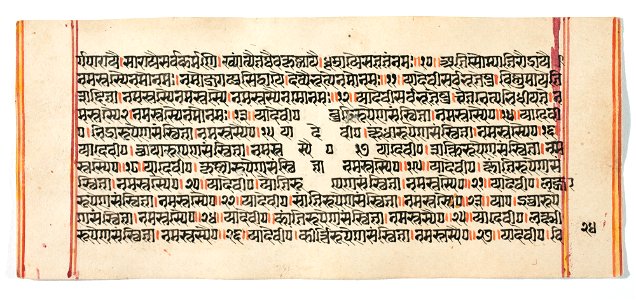 र्गपारायै। सारायै सर्वकारिण्यै। ख्यात्यै तथैव कृष्णायै। धूम्रायै सततं नमः॥१०॥ अतिसौम्यातिरौद्रायै।
नमस्तस्यै नमोनमः। नमो जगत्प्रतिष्ठायै। देव्यै कृत्यै नमोनमः॥११॥ या देवी सर्वभूतेषु। विष्णुमायेति
शब्दिता। नमस्तस्यै नमस्तस्यै। नमस्तस्यै नमोनमः॥१२॥ या देवी सर्वभूतेषु चेतनेत्यभिधीयते। न
मस्तस्यै २ नमस्तस्यै नमोनमः॥१३॥ या देवी० बुद्धिरूपेण संस्थिता। नमस्तस्यै०॥१४॥ या देवी
० निद्रारूपेण संस्थिता। नमस्तस्यै० १५ या देवी० क्षुधारूपेण संस्थिता। नमस्तस्यै०॥१६
या देवी० छायारूपेण संस्थिता। नमस्तस्यै० १७ या देवी०। शक्तिरूपेण संस्थिता। नम
स्तस्यै०॥१८ या देवी० तृष्णारूपेण संस्थिता नमस्तस्यै०॥१९॥ या देवी० क्षांतिरूपेण सं
स्थिता। नमस्तस्यै०॥२०॥ या देवी० जातिरूपेण संस्थिता। नमस्तस्यै०॥२१॥ या देवी० लज्जा
रूपेण संस्थिता। नमस्तस्यै०॥२२ या देवी० शांतिरूपेण संस्थिता। नमस्तस्यै०॥२३॥ या देवी० श्रद्धारूपे
ण संस्थिता। नमस्तस्यै०॥२४॥ या देवी० कांतिरूपेण संस्थिता। नमस्तस्यै०॥२५॥ या देवी० लक्ष्मी
रूपेण संस्थिता। नमस्तस्यै०॥२६॥ या देवी० कीर्त्तिरूपेण संस्थिता। नमस्तस्यै०॥२७॥ या देवी० वि
२४